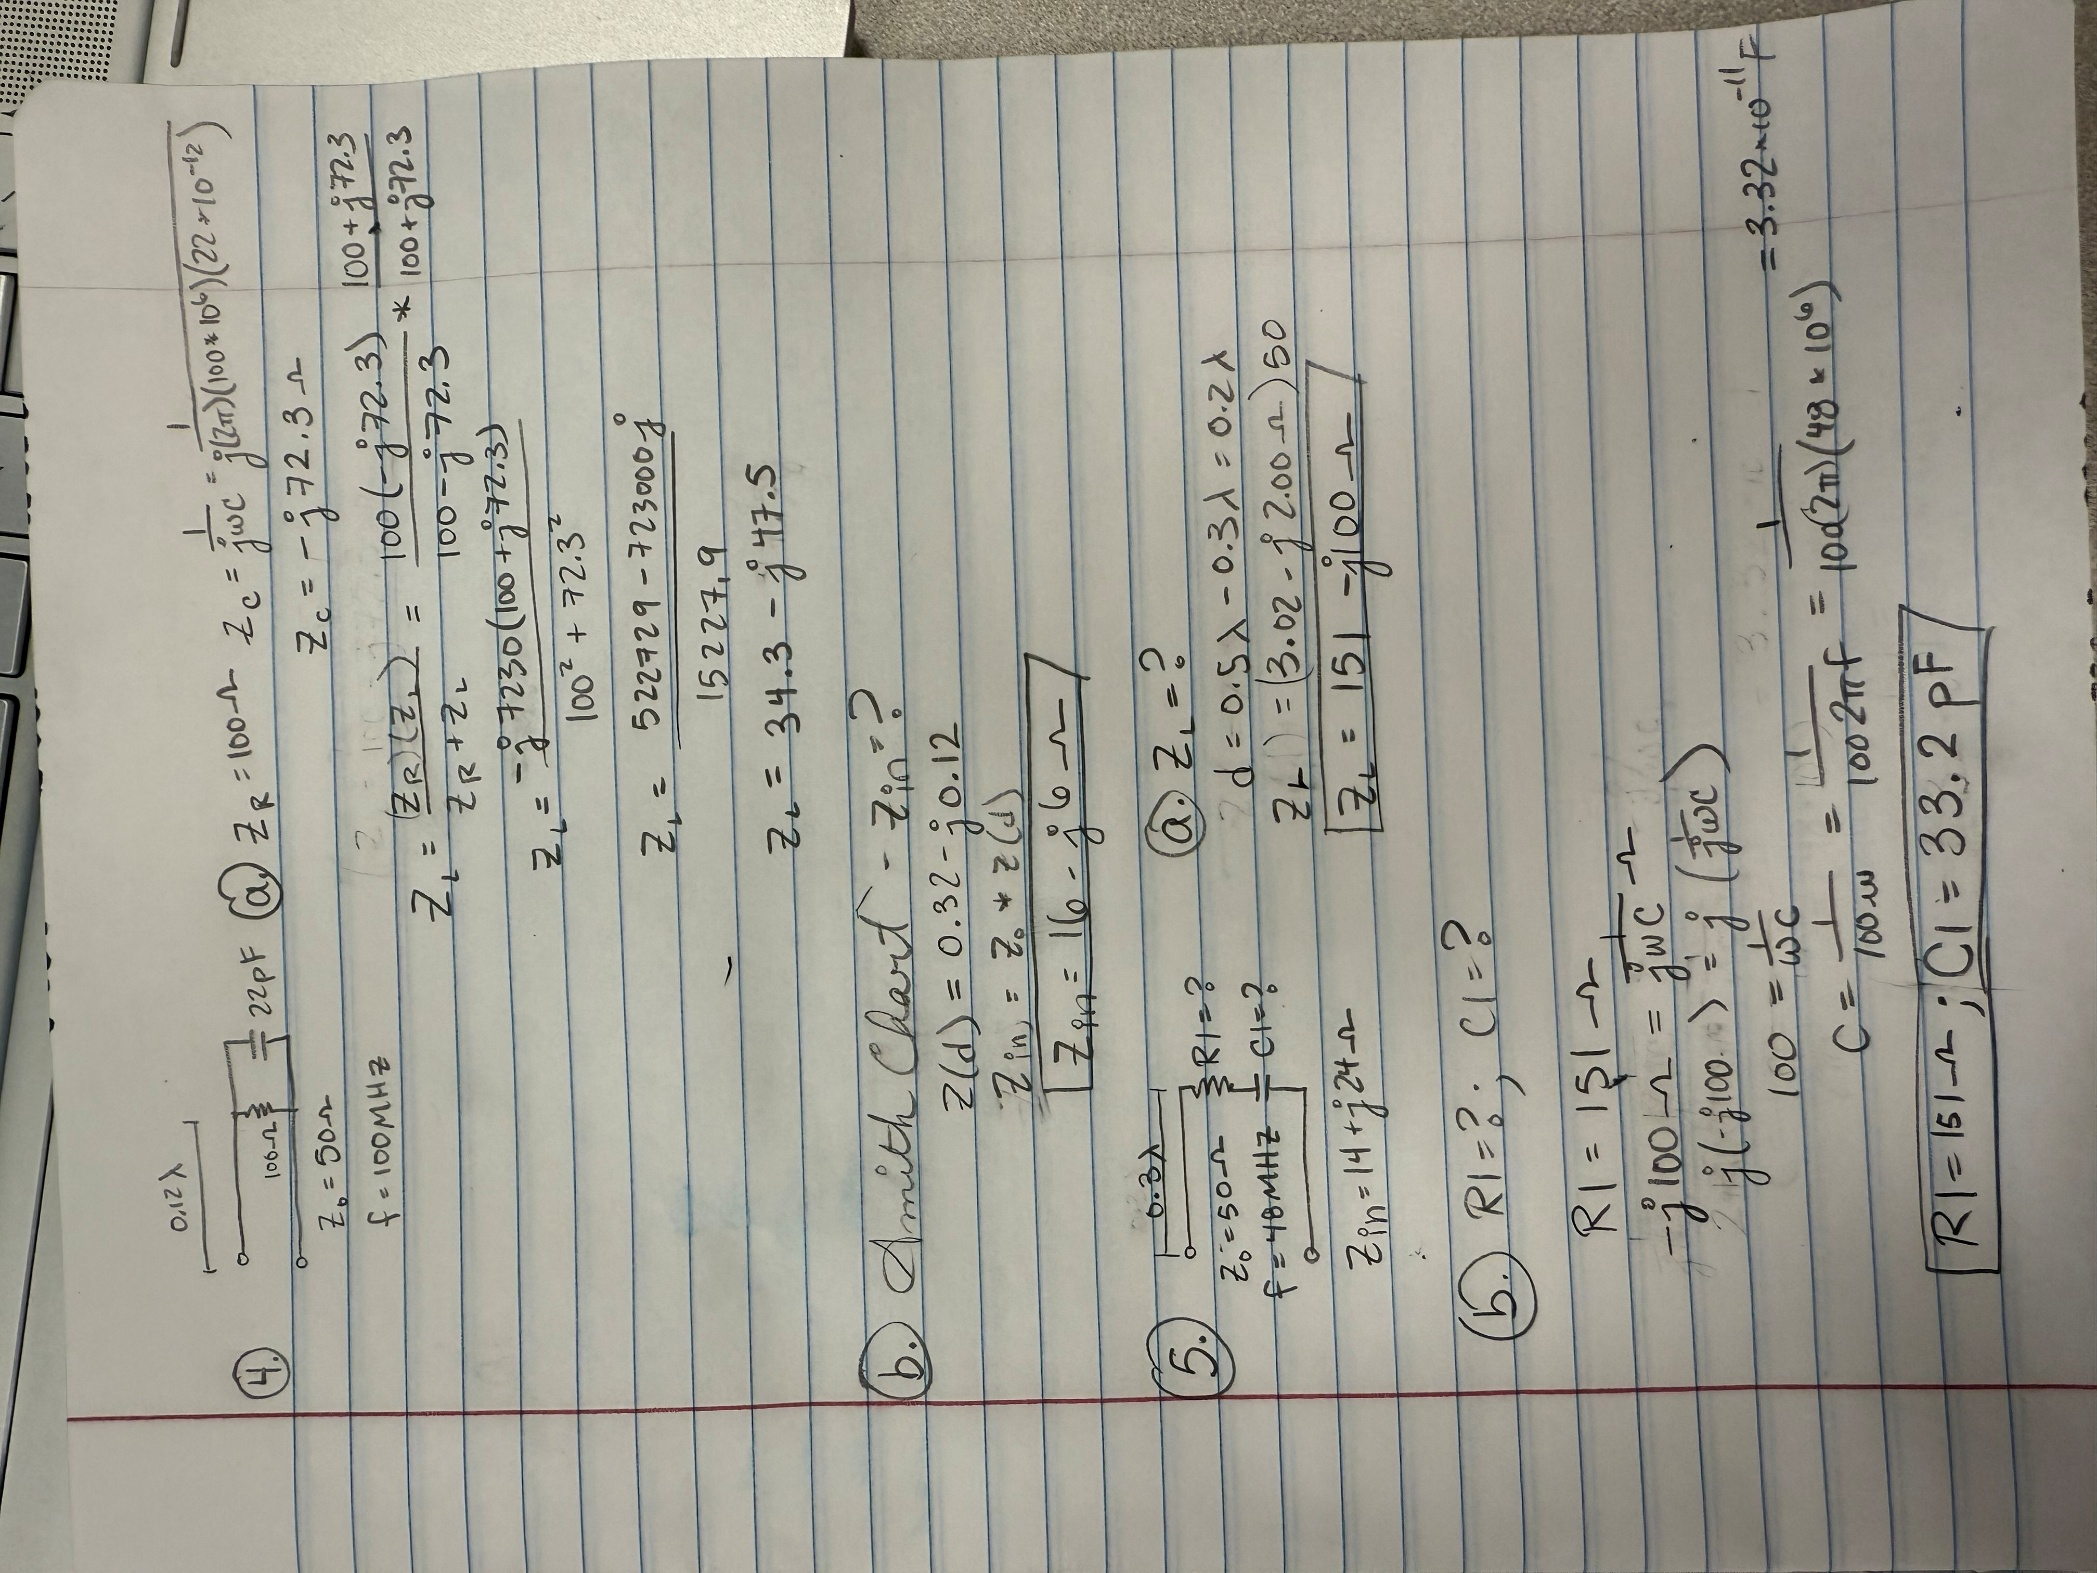 0.12λ
④ 100Ω 22pF ⓐ Z_R = 100Ω Z_C = 1/jωC = 1/j(2π)(100*10⁶)(22*10⁻¹²)
Z₀ = 50Ω
f = 100MHz
Z_C = -j72.3Ω
Z_L = (Z_R)(Z_L)/Z_R + Z_L = 100(-j72.3)/100-j72.3 * 100+j72.3/100+j72.3
Z_L = -j7230(100+j72.3)/100² + 72.3²
Z_L = 522729 - 723000j/15227.9
Z_L = 34.3 - j47.5
ⓑ. Smith Chart - Zin=?
Z(d) = 0.32 - j0.12
Zin = Z₀ * Z(d)
Zin = 16 - j6Ω
⑤. 0.3λ R1=? C1=? ⓐ. Z_L = ?
Z₀ = 50Ω
f = 48MHz
Zin = 14+j24Ω
d = 0.5λ - 0.3λ = 0.2λ
Z_L = (3.02 - j2.00Ω)50
Z_L = 151 - j100Ω
ⓑ. R1=?; C1=?
R1 = 151Ω
-j100Ω = 1/jωC Ω
j(-j100) = j(1/jωC)
100 = 1/ωC
C = 1/100ω = 1/100 2πf = 1/100(2π)(48*10⁶) = 3.32*10⁻¹¹F
R1 = 151Ω; C1 = 33.2pF